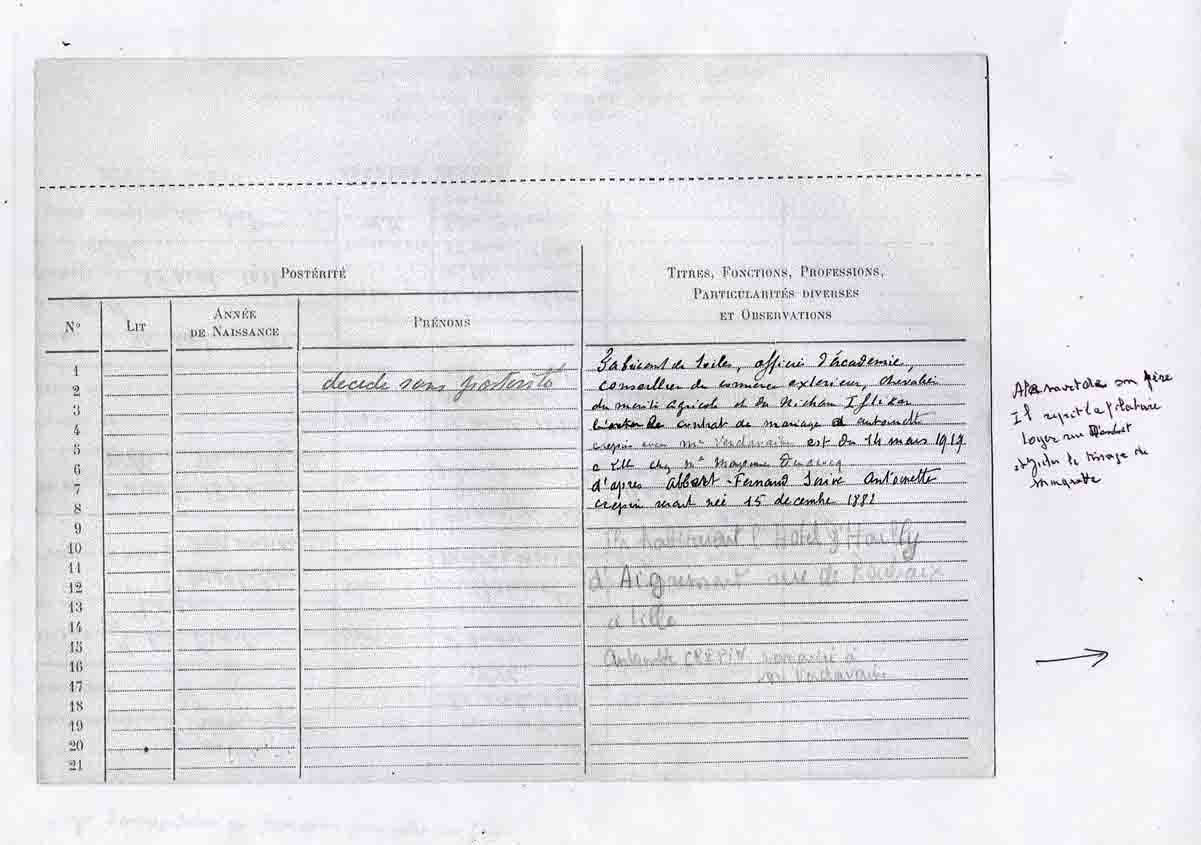 POSTÉRITÉ
TITRES, FONCTIONS, PROFESSIONS,
PARTICULARITÉS DIVERSES
ET OBSERVATIONS
N°
LIT
ANNÉE
DE NAISSANCE
PRÉNOMS
1
2
3
4
5
6
7
8
9
10
11
12
13
14
15
16
17
18
19
20
21
decede sans posterité
Fabricant de toiles, officier d'Académie,
conseiller du commerce exterieur, chevalier
du merite Agricole et du Nichan Iftikar
contrat de mariage d antoinette
crepin avec Mr Vendavaine est du 14 mars 1919
a Lille chez Me
d'après Albert-Fernand Scrive Antoinette
crepin serait née 15 decembre 1882
Ils habitaient l'Hotel d'Hailly
d'Aigremont rue de Roubaix
à Lille
Antoinette CREPIN remariée à
Mr Vendavaine
A la mort de son père
Il reprit la filature
rue
et le tissage de
Marquette